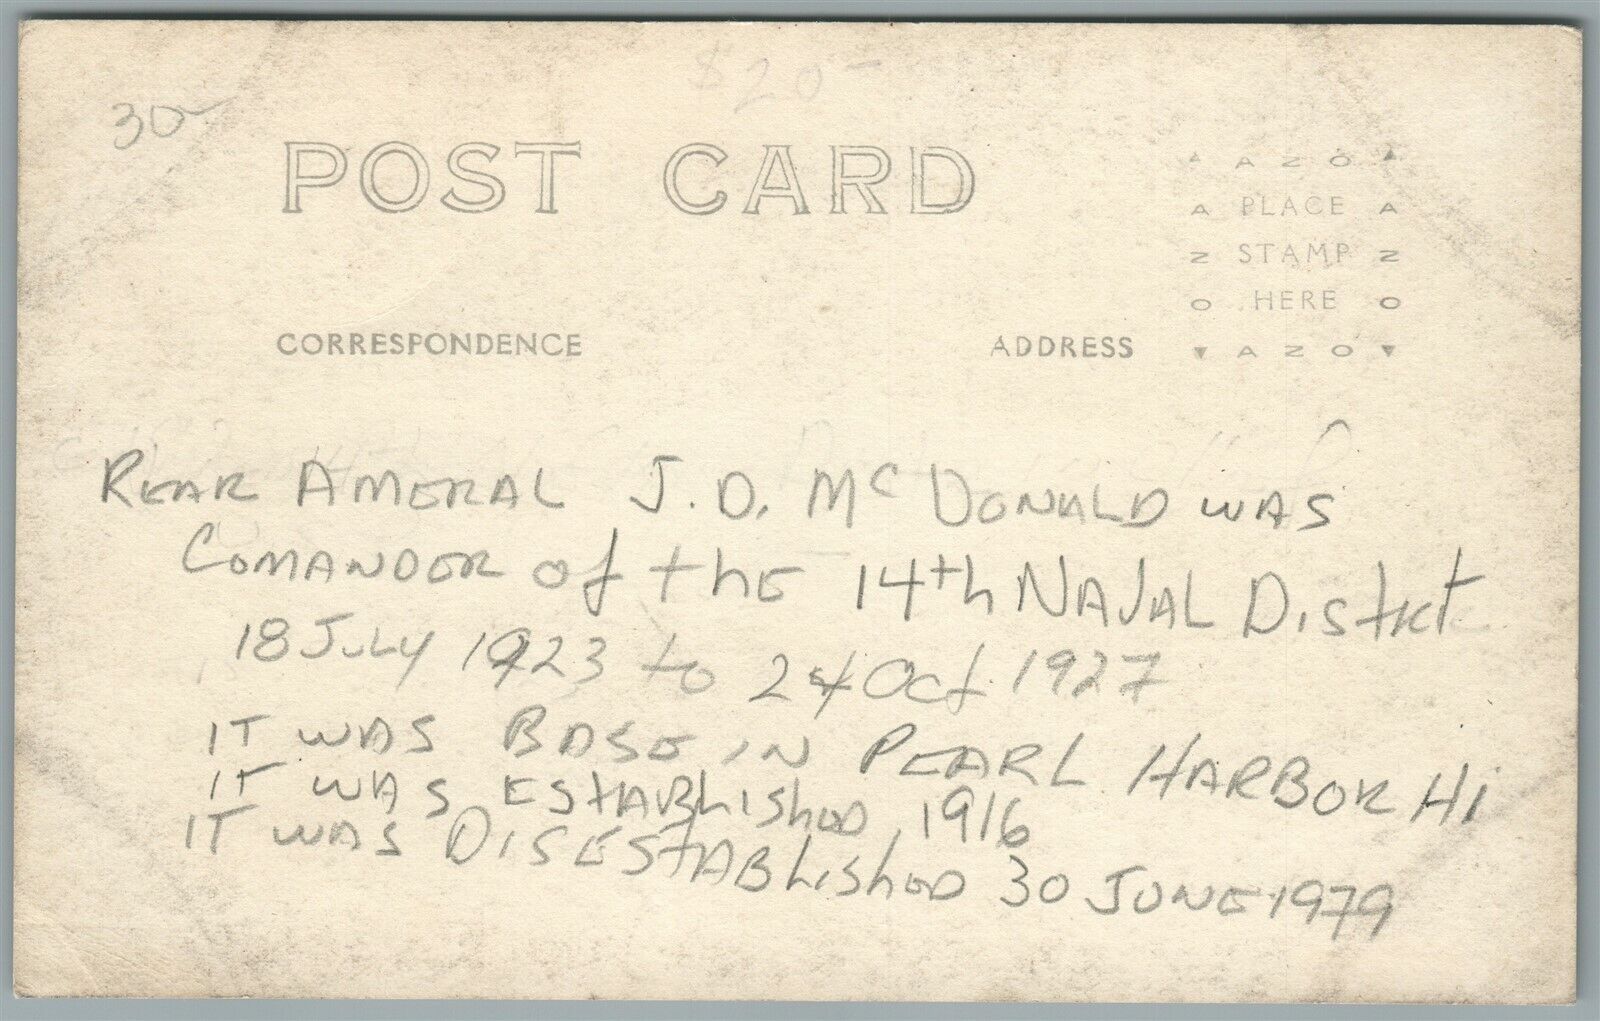 $20-
30-
POST CARD
AZO
A PLACE A
Z STAMP Z
O HERE O
AZO
CORRESPONDENCE
ADDRESS
REAR AMERAL J.D. McDONALD WAS
COMANDER of the 14th NAVAL DIStRCt
18 JULY 1923 to 24 Oct 1927
IT WAS BASE IN PEARL HARBOR Hi
IT WAS EStABLIShED, 1916
IT WAS DISEStABLIShED 30 JUNE 1979